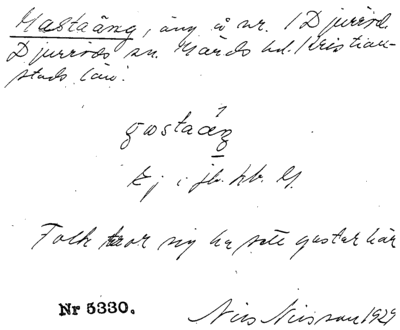 Gastaäng, äng å nr. 1 Djurröd
Djurröds sn. Gärds hd. Kristian-
stads län.
gastaäŋ
Ej i jb. hb. G.
Folk tror sig ha sett gastar här
Nr 5330.
Nils Nilsson 1929